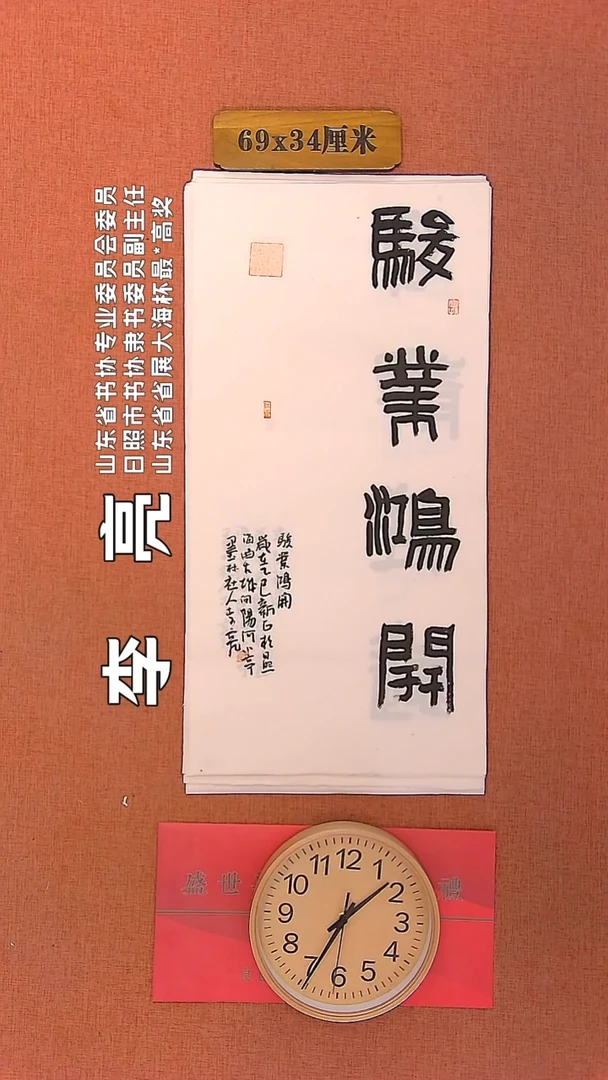 69x34厘米
駿業鴻開
駿業鴻開
歲在乙巳新正於日照
海曲大雄向陽河小亭
墨村社人李亮
李亮
山东省书协专业委员会委员
日照市书协隶书委员副主任
山东省省展大海杯最*高奖
盛世
禮
12
1
2
3
4
5
6
7
8
9
10
11